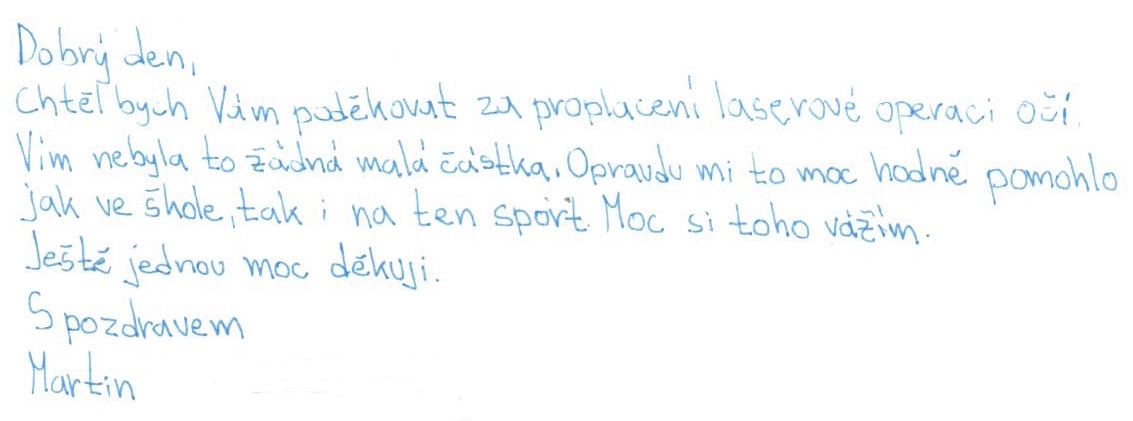 Dobrý den,
Chtěl bych Vám poděkovat za proplacení laserové operaci očí.
Vím nebyla to žádná malá částka. Opravdu mi to moc hodně pomohlo
jak ve škole, tak i na ten sport. Moc si toho vážím.
Ještě jednou moc děkuji.
S pozdravem
Martin